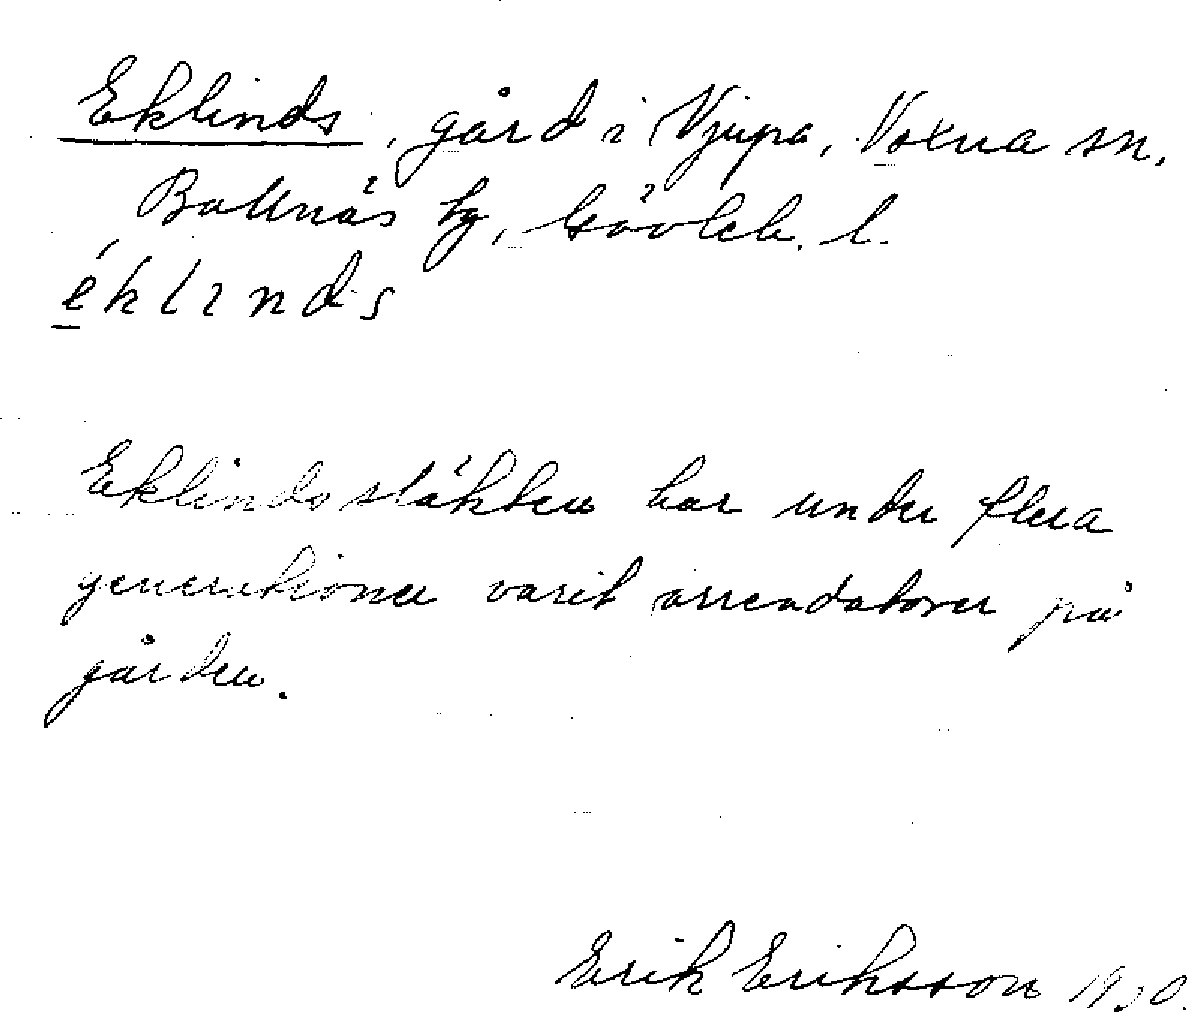 Eklinds, gård i Njupa, Voxna sn,
Bollnäs tg, Gävleb. l.
éklinds
Eklindssläkten har under flera
generationer varit arrendatorer på
gården.
Erik Eriksson